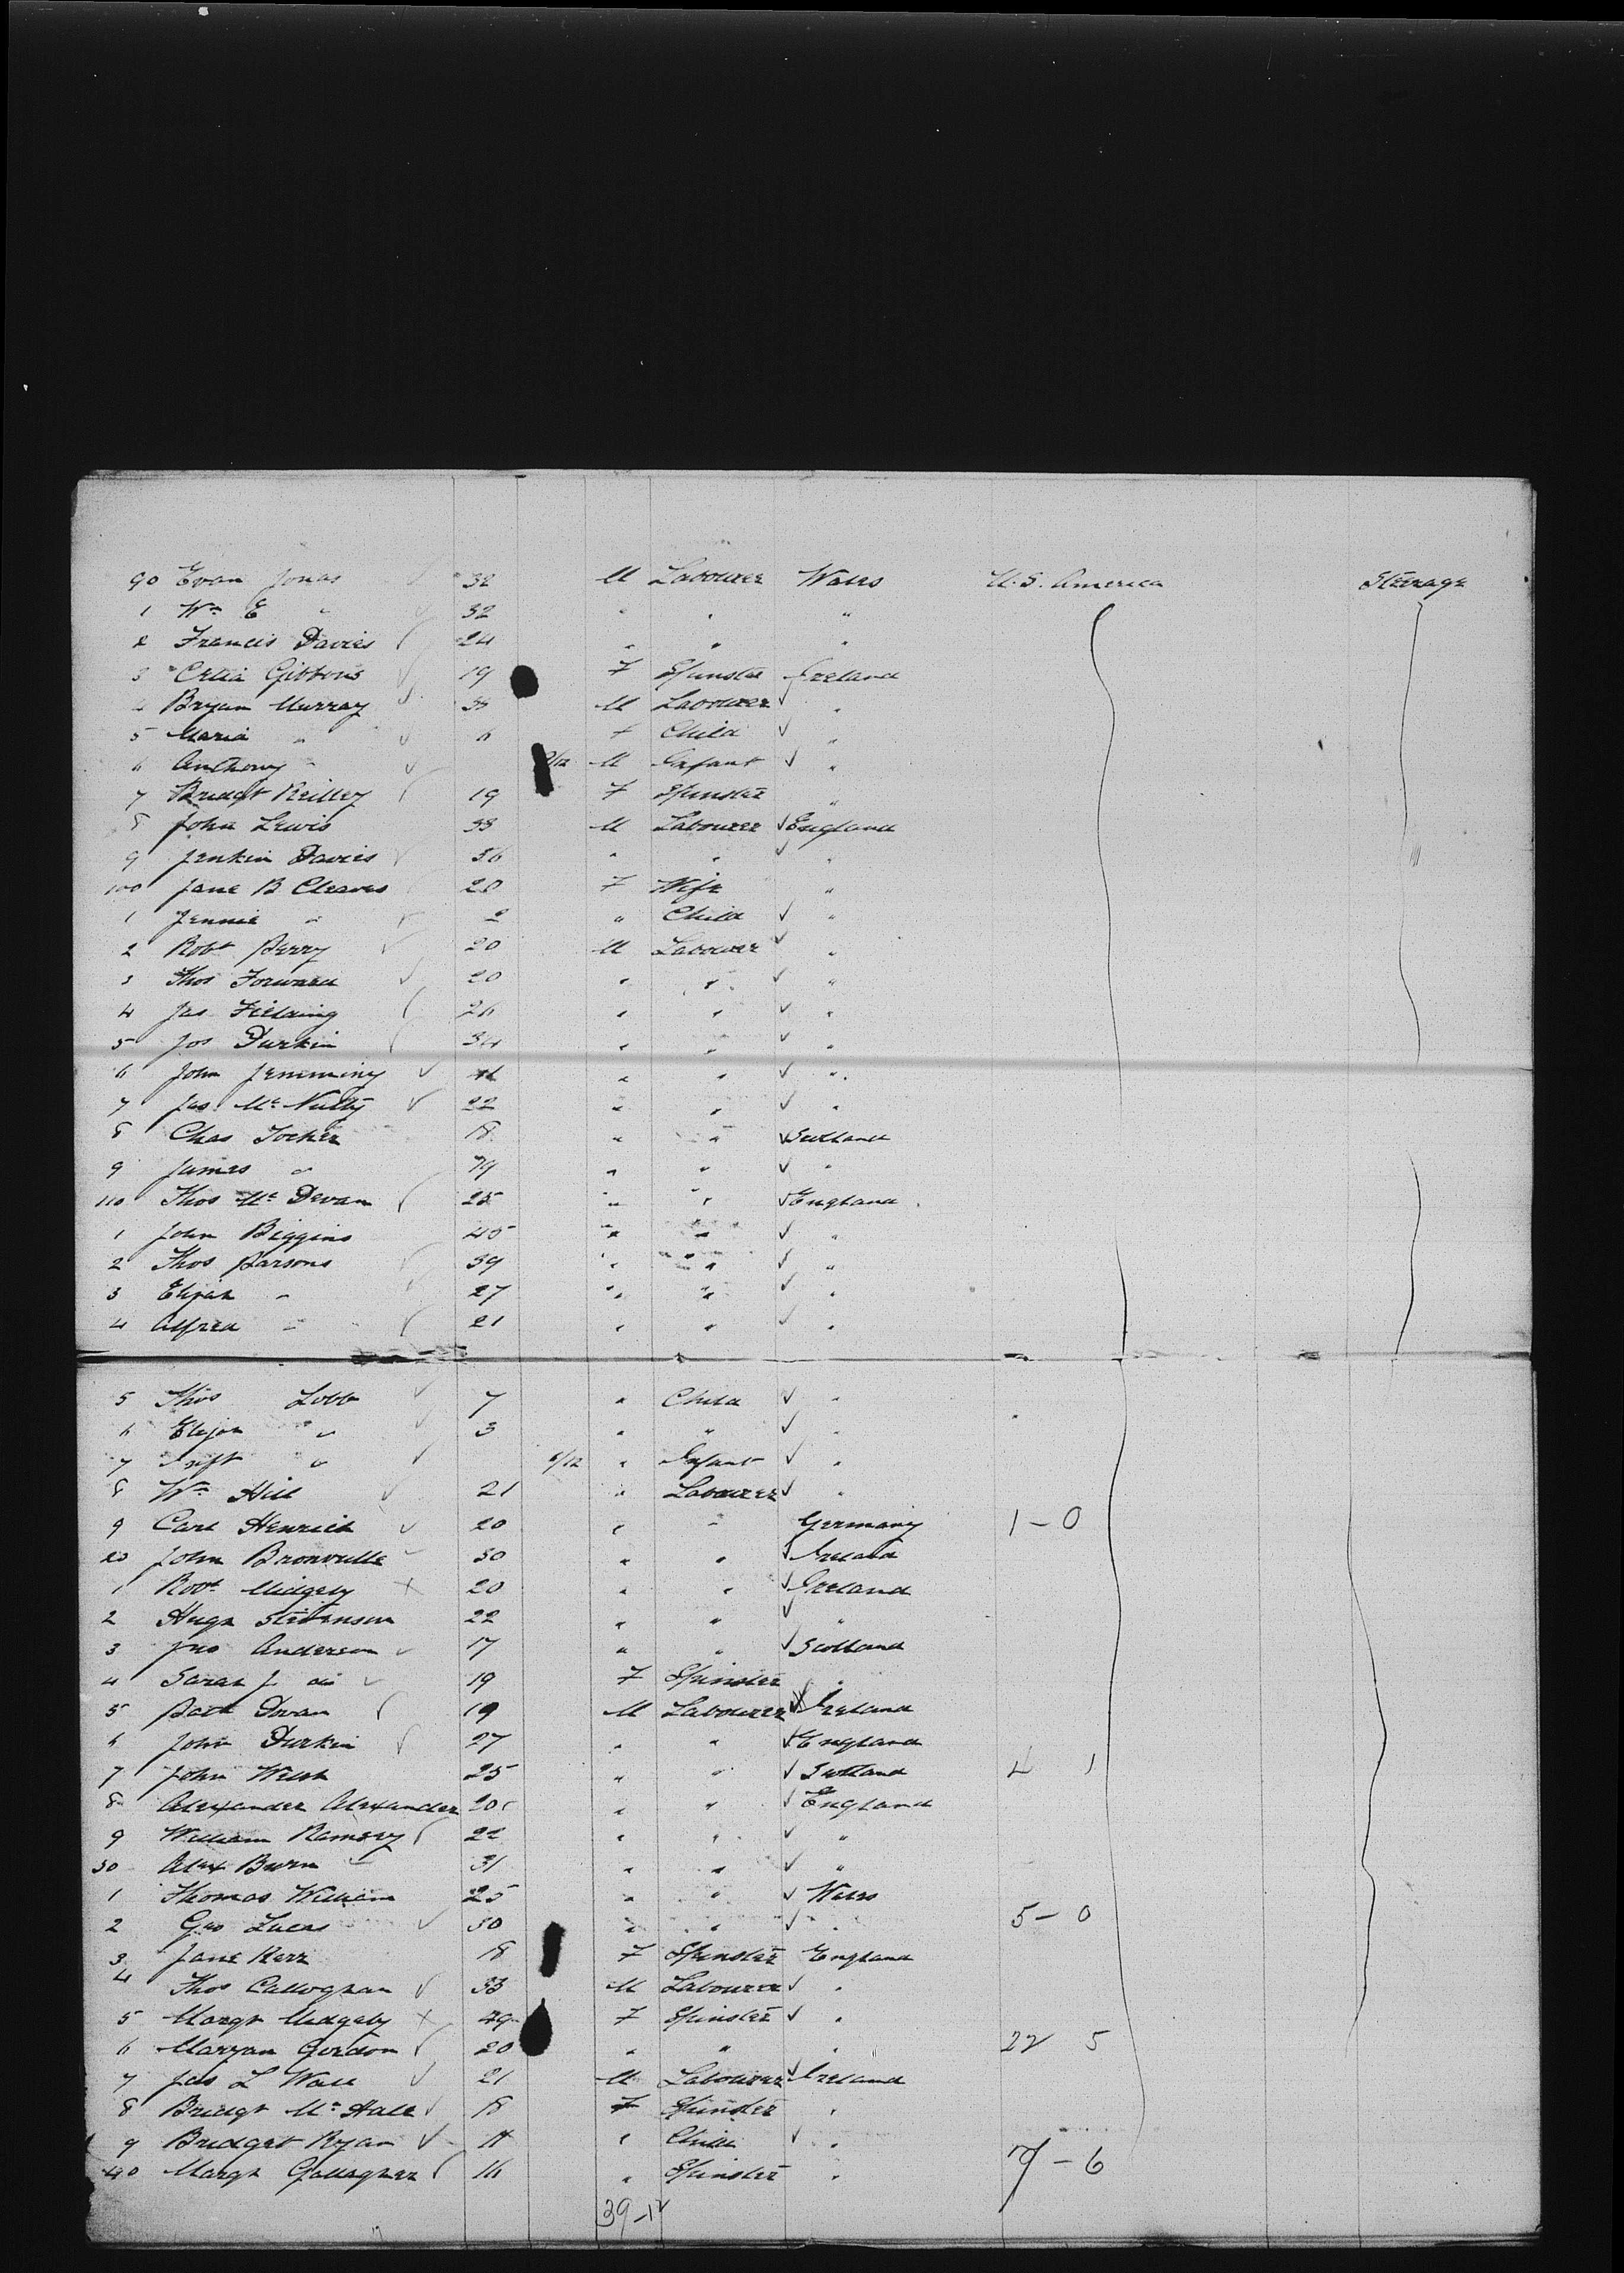 90 Evan Jonas 32 M Labourer Wales U.S. America Steerage
1 Wm E " 32 " " "
2 Francis Davies 24 " " "
3 Celia Gibbons 19 F Spinster Ireland
Bryan Murray M Labourer "
5 Maria " 6 F Child "
6 Anthony " /12 M Infant "
7 Bridgt Reilley 19 F Spinster "
8 John Lewis 33 M Labourer England
9 Jenkin Davies 36 " " "
100 Jane B Cleaves 28 F Wife "
1 Jennie " 2 " Child "
2 Robt Perry 20 M Labourer "
3 Thos Forward 20 " " "
4 Jas Fielding 26 " " "
5 Jos Durkin 34 " " "
6 John Jemminy " " "
7 Jas McNulty 22 " " "
8 Chas Tocher 18 " " Scotland
9 James " " " "
110 Thos McDevan 25 " " England
1 John Biggins 45 " " "
2 Thos Parsons 39 " " "
3 Elijah " 27 " " "
4 Alfred " 21 " " "
5 Thos Lobb 7 " Child "
6 Elijah " 3 " " "
7 Inft " 6/12 " Infant "
8 Wm Hill 21 " Labourer "
9 Carl Henrich 20 " " Germany 1-0
20 John 30 " " Ireland
1 Robt Midgely 20 " " Ireland
2 Hugh Stevenson 22 " " "
3 Jno Anderson 17 " " Scotland
4 Sarah J do 19 F Spinster "
5 Patk 19 M Labourer Ireland
6 John Durkin 27 " " England
7 John Welsh 25 " " Scotland 4 1
8 Alexander Alexander 20 " " England
9 William Ramsey 22 " " "
30 Alex Burn 31 " " "
1 Thomas William 25 " " Wales
2 Geo Lucas 30 " " " 5-0
3 Jane Kerr 18 F Spinster England
4 Thos Calloghan 33 M Labourer "
5 Margt Midgely F Spinster "
6 Maryan Gordon 20 " " " 22 5
7 Jas L Wall 21 M Labourer Ireland
8 Bridgt McHale 18 F Spinster "
9 Bridget Ryan 11 " Child "
40 Margt Gallagher 16 " Spinster " 7-6
39-12